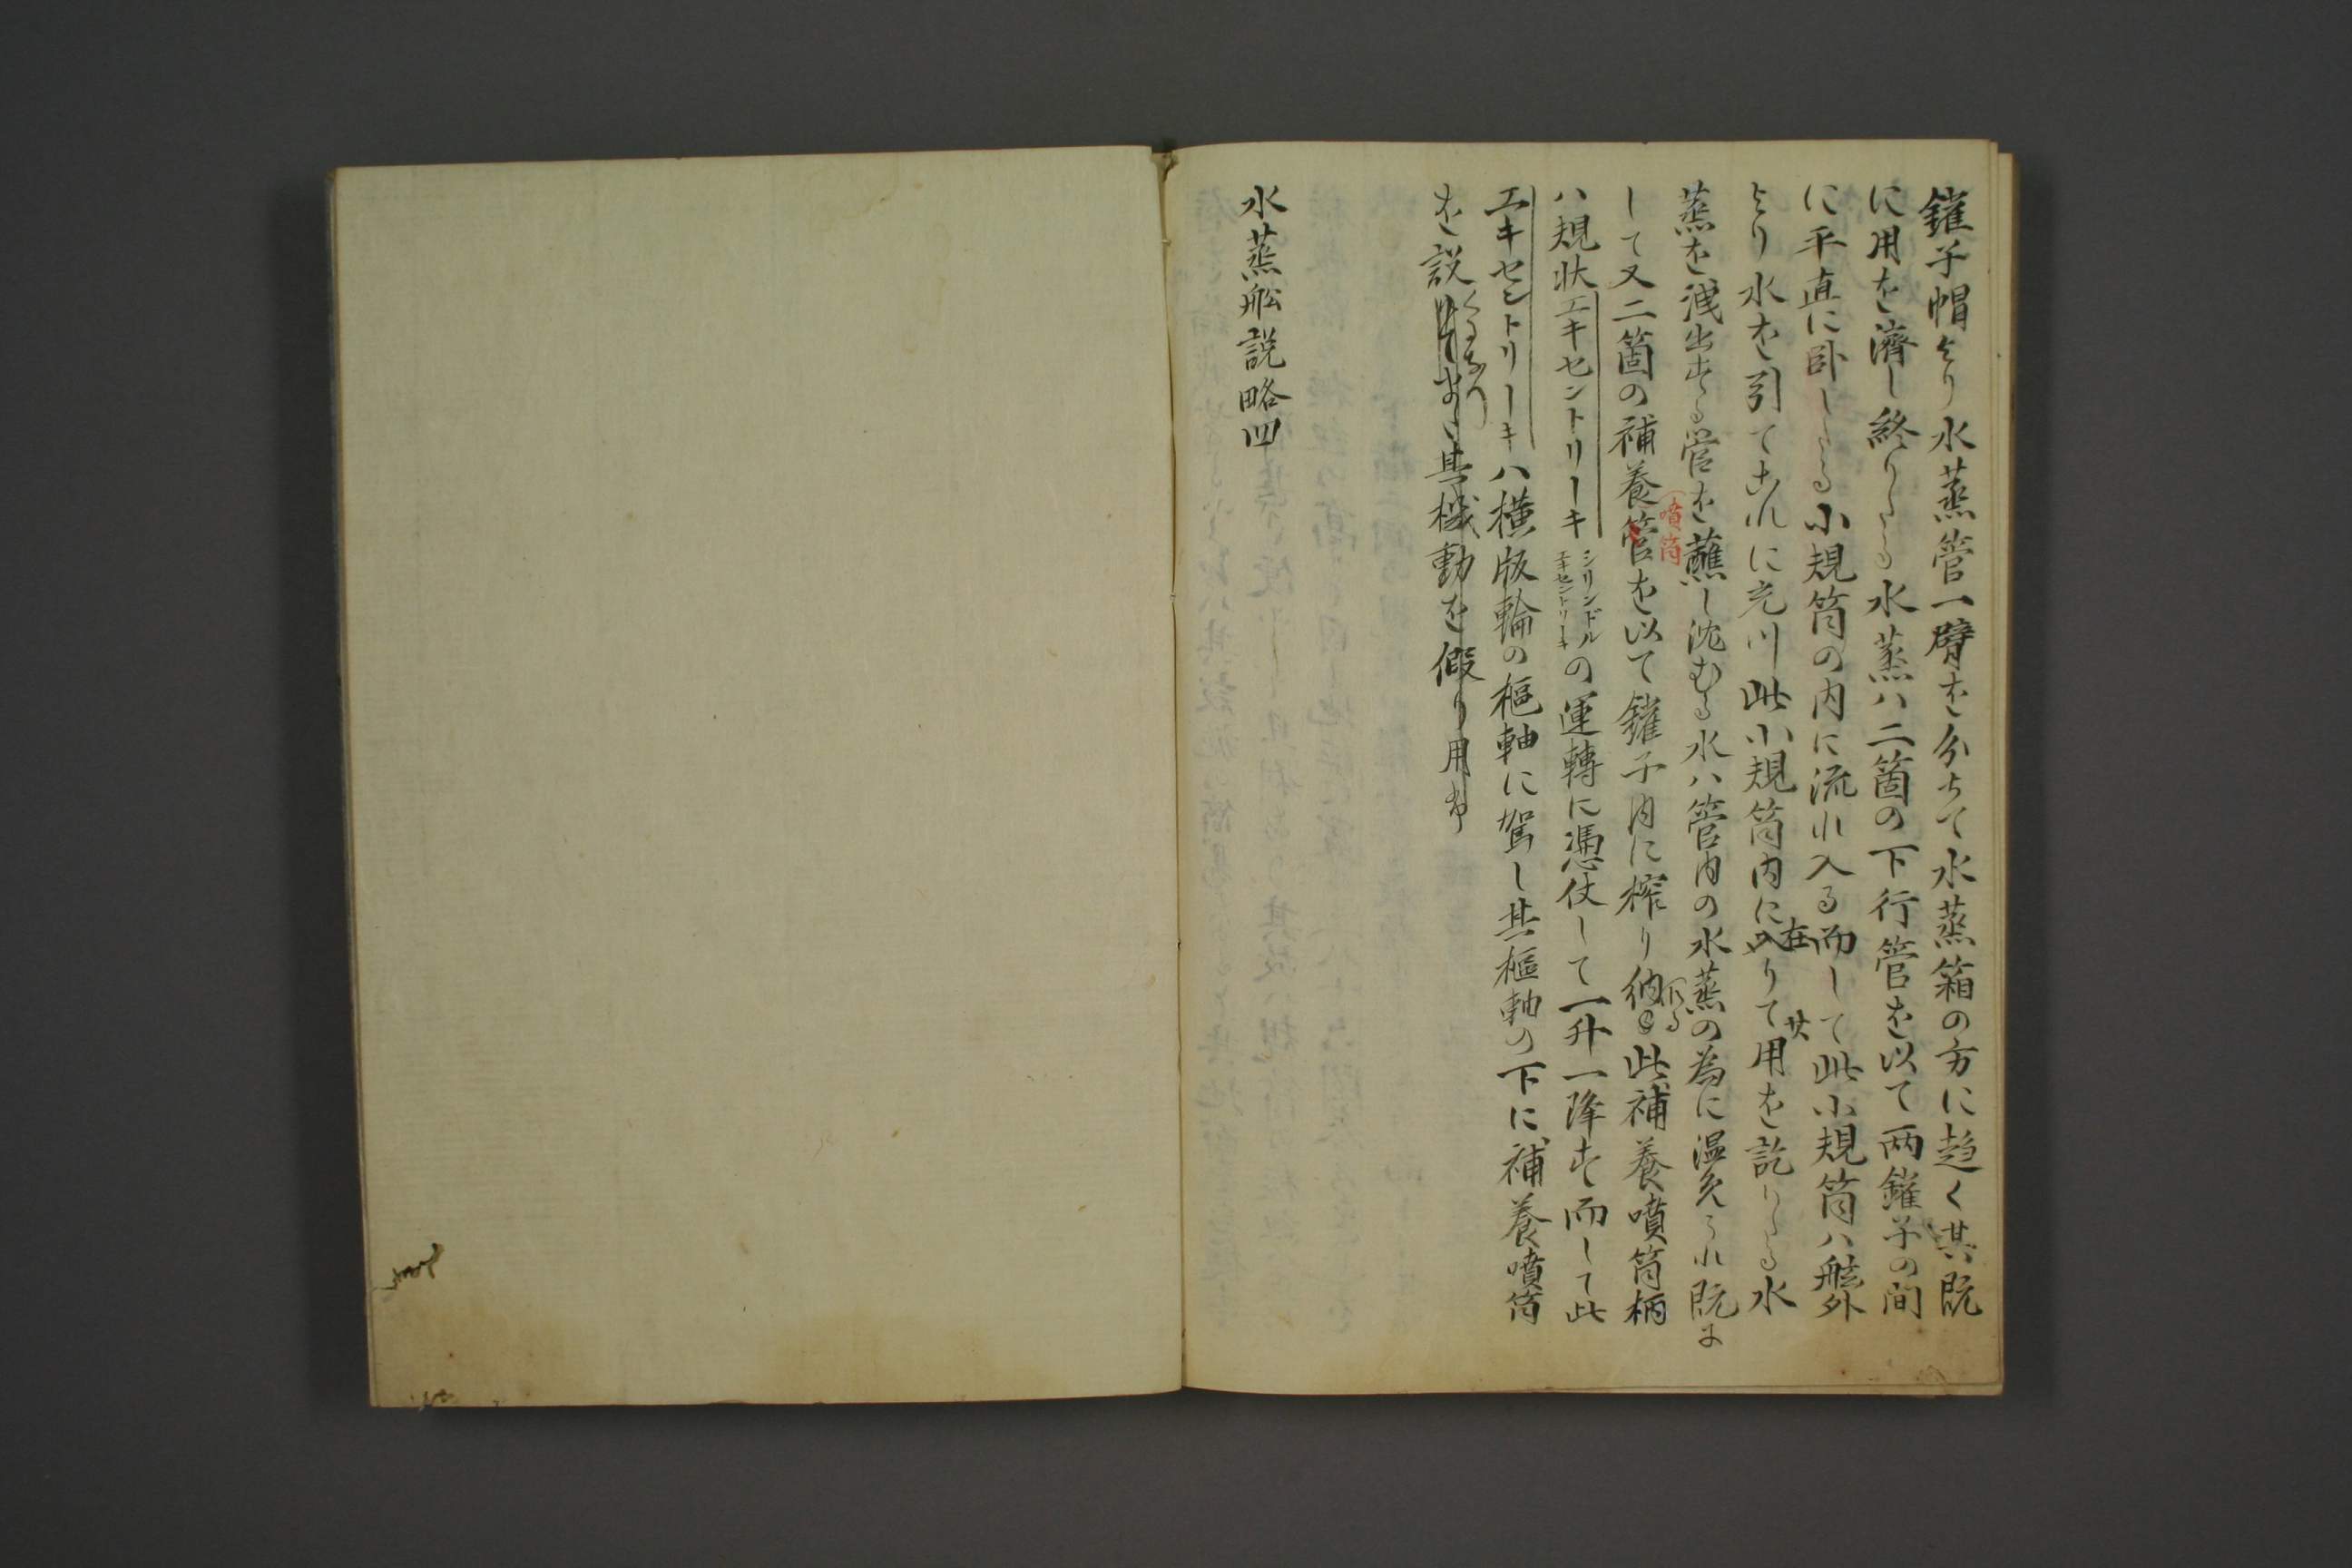 鑵子帽より水蒸管一臂を分ちて水蒸箱の方に趋く其既
に用を濟し終りたる水蒸ハ二箇の下行管を以て両鑵子の間
に平直に卧したる小規筒の内に流れ入る而して此小規筒ハ舷外
より水を引てこれに充つ此小規筒内に在りて其用を訖りたる水
蒸を洩出する管を蘸し沈むる水ハ管内の水蒸の為に温られ既に
して又二箇の補養管を以て鑵子内に搾り納る此補養噴筒柄
噴筒
ハ規状エキセントリーキ シリンドル エキセントリーキ の運轉に憑仗して一升一降す而して此
エキセントリーキハ横版輪の樞軸に駕し其樞軸の下に補養噴筒
を説くるあり其機動を假り用ゆ
水蒸舩説略四